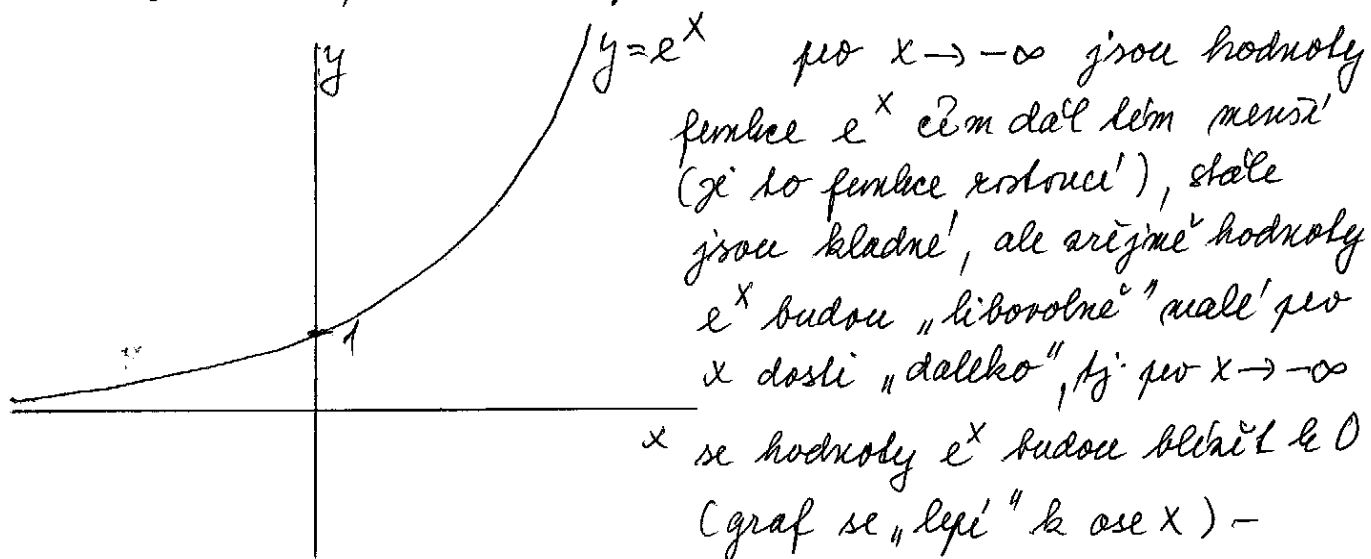 y
y=e^x
1
x
pro x → -∞ jsou hodnoty
funkce e^x čím dál tím menší
(je to funkce rostoucí), stále
jsou kladné, ale zřejmě hodnoty
e^x budou „libovolně" malé pro
x dosti „daleko", tj. pro x → -∞
se hodnoty e^x budou blížit k 0
(graf se „lepí" k ose x) -